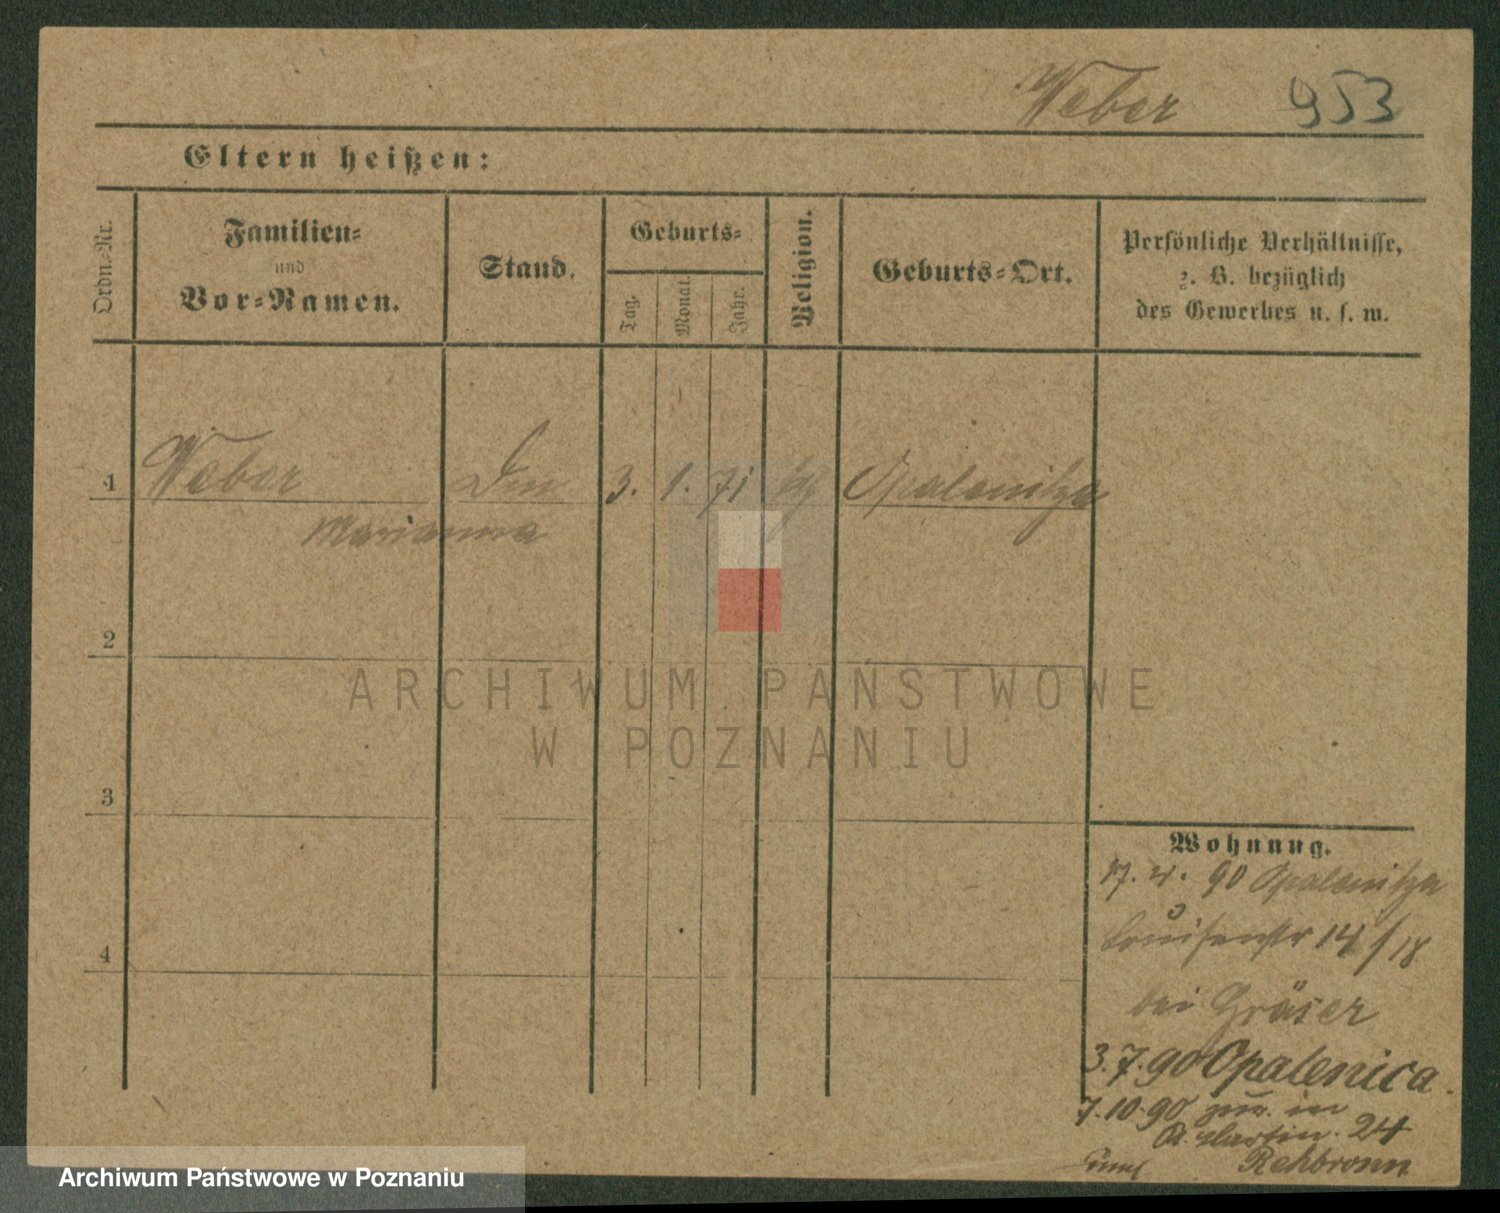 Weber 953
Eltern heißen:
Ordn.-Nr.
Familien-
und
Vor-Namen.
Stand.
Geburts-
Tag.
Monat.
Jahr.
Religion.
Geburts-Ort.
Persönliche Verhältnisse,
z. B. bezüglich
des Gewerbes u. s. w.
1 Weber 3. 1. 71 Opalenitza
Marianna
2
3
4
Wohnung.
90 Opalenitza
Louisenstr 14/18
bei Gräser
3.7.90 Opalenica.
7.10.90 zur. in
St. Martin. 24
Rehbronn
ARCHIWUM PAŃSTWOWE
W POZNANIU
Archiwum Państwowe w Poznaniu